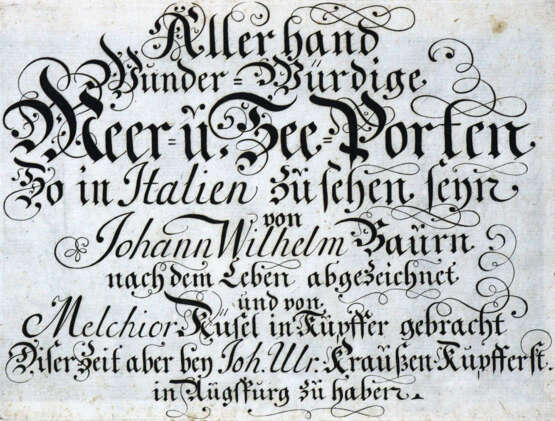 Allerhand
Wunder=Würdige
Meer= ũ. See=Porten
So in Italien zũ sehen seÿn
von
Johann Wilhelm Baũrn
nach dem Leben abgezeichnet
ũnd von
Melchior Küsel in Kũpffer gebracht
Diser Zeit aber beÿ Joh. Ulr. Kraũßen Kupfferst.
in Aũgspurg zũ haben.